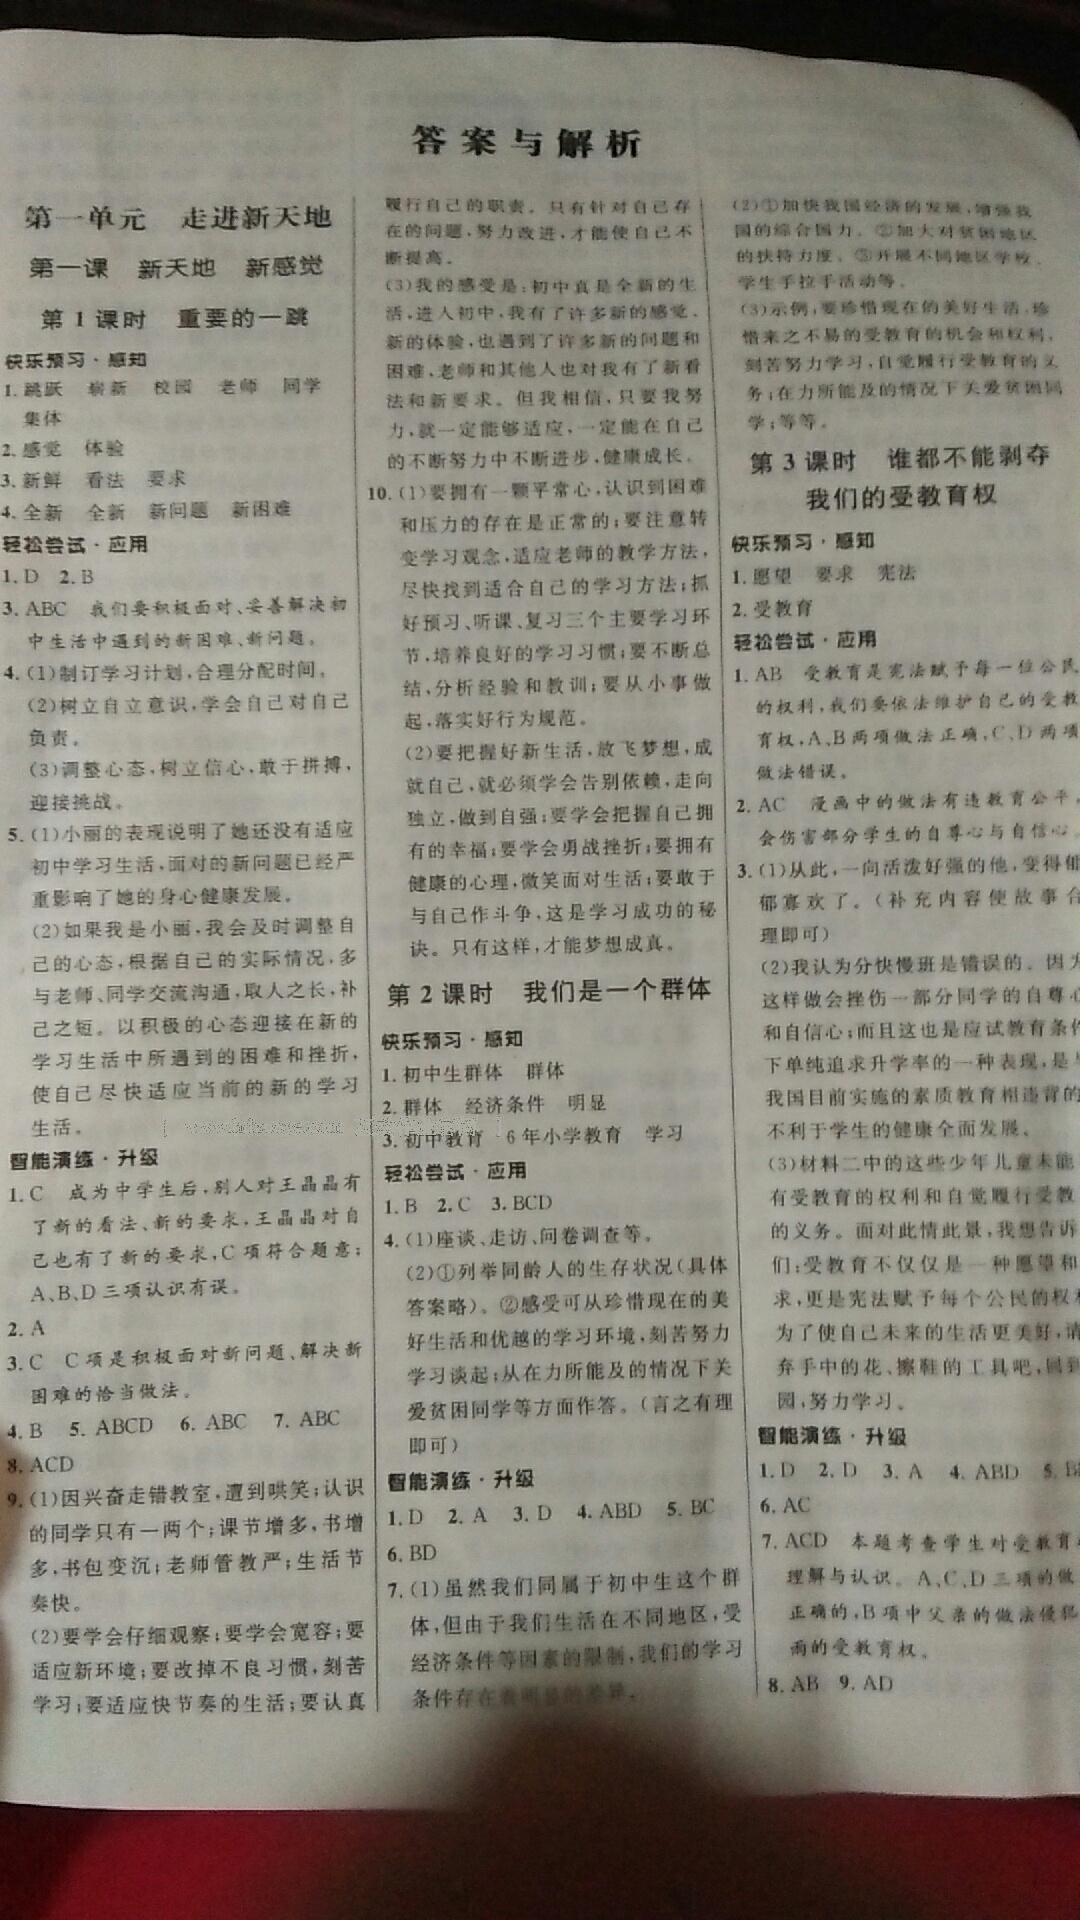 答案与解析
第一单元 走进新天地
第一课 新天地 新感觉
第1课时 重要的一跳
快乐预习·感知
1.跳跃 崭新 校园 老师 同学
集体
2.感觉 体验
3.新鲜 看法 要求
4.全新 全新 新问题 新困难
轻松尝试·应用
1.D 2.B
3.ABC 我们要积极面对、妥善解决初
中生活中遇到的新困难、新问题。
4.(1)制订学习计划,合理分配时间。
(2)树立自立意识,学会自己对自己
负责。
(3)调整心态,树立信心,敢于拼搏,
迎接挑战。
5.(1)小丽的表现说明了她还没有适应
初中学习生活,面对的新问题已经严
重影响了她的身心健康发展。
(2)如果我是小丽,我会及时调整自
己的心态,根据自己的实际情况,多
与老师、同学交流沟通,取人之长,补
己之短。以积极的心态迎接在新的
学习生活中所遇到的困难和挫折,
使自己尽快适应当前的新的学习
生活。
智能演练·升级
1.C 成为中学生后,别人对王晶晶有
了新的看法、新的要求,王晶晶对自
己也有了新的要求,C项符合题意;
A、B、D三项认识有误。
2.A
3.C C项是积极面对新问题、解决新
困难的恰当做法。
4.B 5.ABCD 6.ABC 7.ABC
8.ACD
9.(1)因兴奋走错教室,遭到哄笑;认识
的同学只有一两个;课节增多,书增
多,书包变沉;老师管教严;生活节
奏快。
(2)要学会仔细观察;要学会宽容;要
适应新环境;要改掉不良习惯,刻苦
学习;要适应快节奏的生活;要认真
履行自己的职责。只有针对自己存
在的问题,努力改进,才能使自己不
断提高。
(3)我的感受是:初中真是全新的生
活,进入初中,我有了许多新的感觉、
新的体验,也遇到了许多新的问题和
困难,老师和其他人也对我有了新看
法和新要求。但我相信,只要我努
力,就一定能够适应,一定能在自己
的不断努力中不断进步,健康成长。
10.(1)要拥有一颗平常心,认识到困难
和压力的存在是正常的;要注意转
变学习观念,适应老师的教学方法,
尽快找到适合自己的学习方法;抓
好预习、听课、复习三个主要学习环
节,培养良好的学习习惯;要不断总
结,分析经验和教训;要从小事做
起,落实好行为规范。
(2)要把握好新生活,放飞梦想,成
就自己,就必须学会告别依赖,走向
独立,做到自强;要学会把握自己拥
有的幸福;要学会勇战挫折;要拥有
健康的心理,微笑面对生活;要敢于
与自己作斗争,这是学习成功的秘
诀。只有这样,才能梦想成真。
第2课时 我们是一个群体
快乐预习·感知
1.初中生群体 群体
2.群体 经济条件 明显
3.初中教育 6年小学教育 学习
轻松尝试·应用
1.B 2.C 3.BCD
4.(1)座谈、走访、问卷调查等。
(2)①列举同龄人的生存状况(具体
答案略)。②感受可从珍惜现在的美
好生活和优越的学习环境,刻苦努力
学习谈起;从在力所能及的情况下关
爱贫困同学等方面作答。(言之有理
即可)
智能演练·升级
1.D 2.A 3.D 4.ABD 5.BC
6.BD
7.(1)虽然我们同属于初中生这个群
体,但由于我们生活在不同地区,受
经济条件等因素的限制,我们的学习
条件存在着明显的差异。
(2)①加快我国经济的发展,增强我
国的综合国力。②加大对贫困地区
的扶持力度。③开展不同地区学校、
学生手拉手活动等。
(3)示例:要珍惜现在的美好生活,珍
惜来之不易的受教育的机会和权利,
刻苦努力学习,自觉履行受教育的义
务;在力所能及的情况下关爱贫困同
学;等等。
第3课时 谁都不能剥夺
我们的受教育权
快乐预习·感知
1.愿望 要求 宪法
2.受教育
轻松尝试·应用
1.AB 受教育是宪法赋予每一位公民
的权利,我们要依法维护自己的受教
育权,A、B两项做法正确,C、D两项
做法错误。
2.AC 漫画中的做法有违教育公平,
会伤害部分学生的自尊心与自信心。
3.(1)从此,一向活泼好强的他,变得郁
郁寡欢了。(补充内容使故事合
理即可)
(2)我认为分快慢班是错误的。因为
这样做会挫伤一部分同学的自尊心
和自信心;而且这也是应试教育条件
下单纯追求升学率的一种表现,是与
我国目前实施的素质教育相违背的
不利于学生的健康全面发展。
(3)材料二中的这些少年儿童未能
有受教育的权利和自觉履行受教
的义务。面对此情此景,我想告诉
们:受教育不仅仅是一种愿望和
求,更是宪法赋予每个公民的权
为了使自己未来的生活更美好,请
弃手中的花、擦鞋的工具吧,回到
园,努力学习。
智能演练·升级
1.D 2.D 3.A 4.ABD 5.B
6.AC
7.ACD 本题考查学生对受教育
理解与认识。A、C、D三项的做
正确的,B项中父亲的做法侵犯
雨的受教育权。
8.AB 9.AD